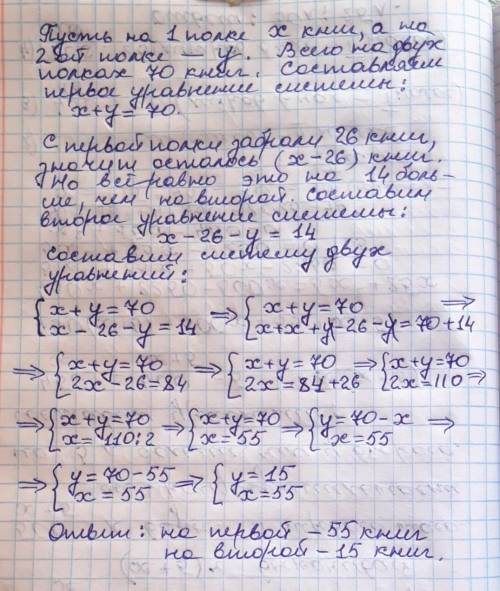 Пусть на 1 полке x книг, а на
2ой полке — y. Всего на двух
полках 70 книг. Составляем
первое уравнение системы:
x+y=70.
С первой полки забрали 26 книг,
значит осталось (x-26) книг.
Но всё равно это на 14 боль-
ше, чем на второй. Составим
второе уравнение системы:
x-26-y=14
Составим систему двух
уравнений:
{x+y=70 => {x+y=70 =>
x-26-y=14 x+x+y-26-y=70+14
=> {x+y=70 => {x+y=70 => {x+y=70
2x-26=84 2x=84+26 2x=110 =>
=> {x+y=70 => {x+y=70 => {y=70-x =>
x=110:2 x=55 x=55
=> {y=70-55 => {y=15
x=55 x=55
Ответ: на первой - 55 книг
на второй - 15 книг.